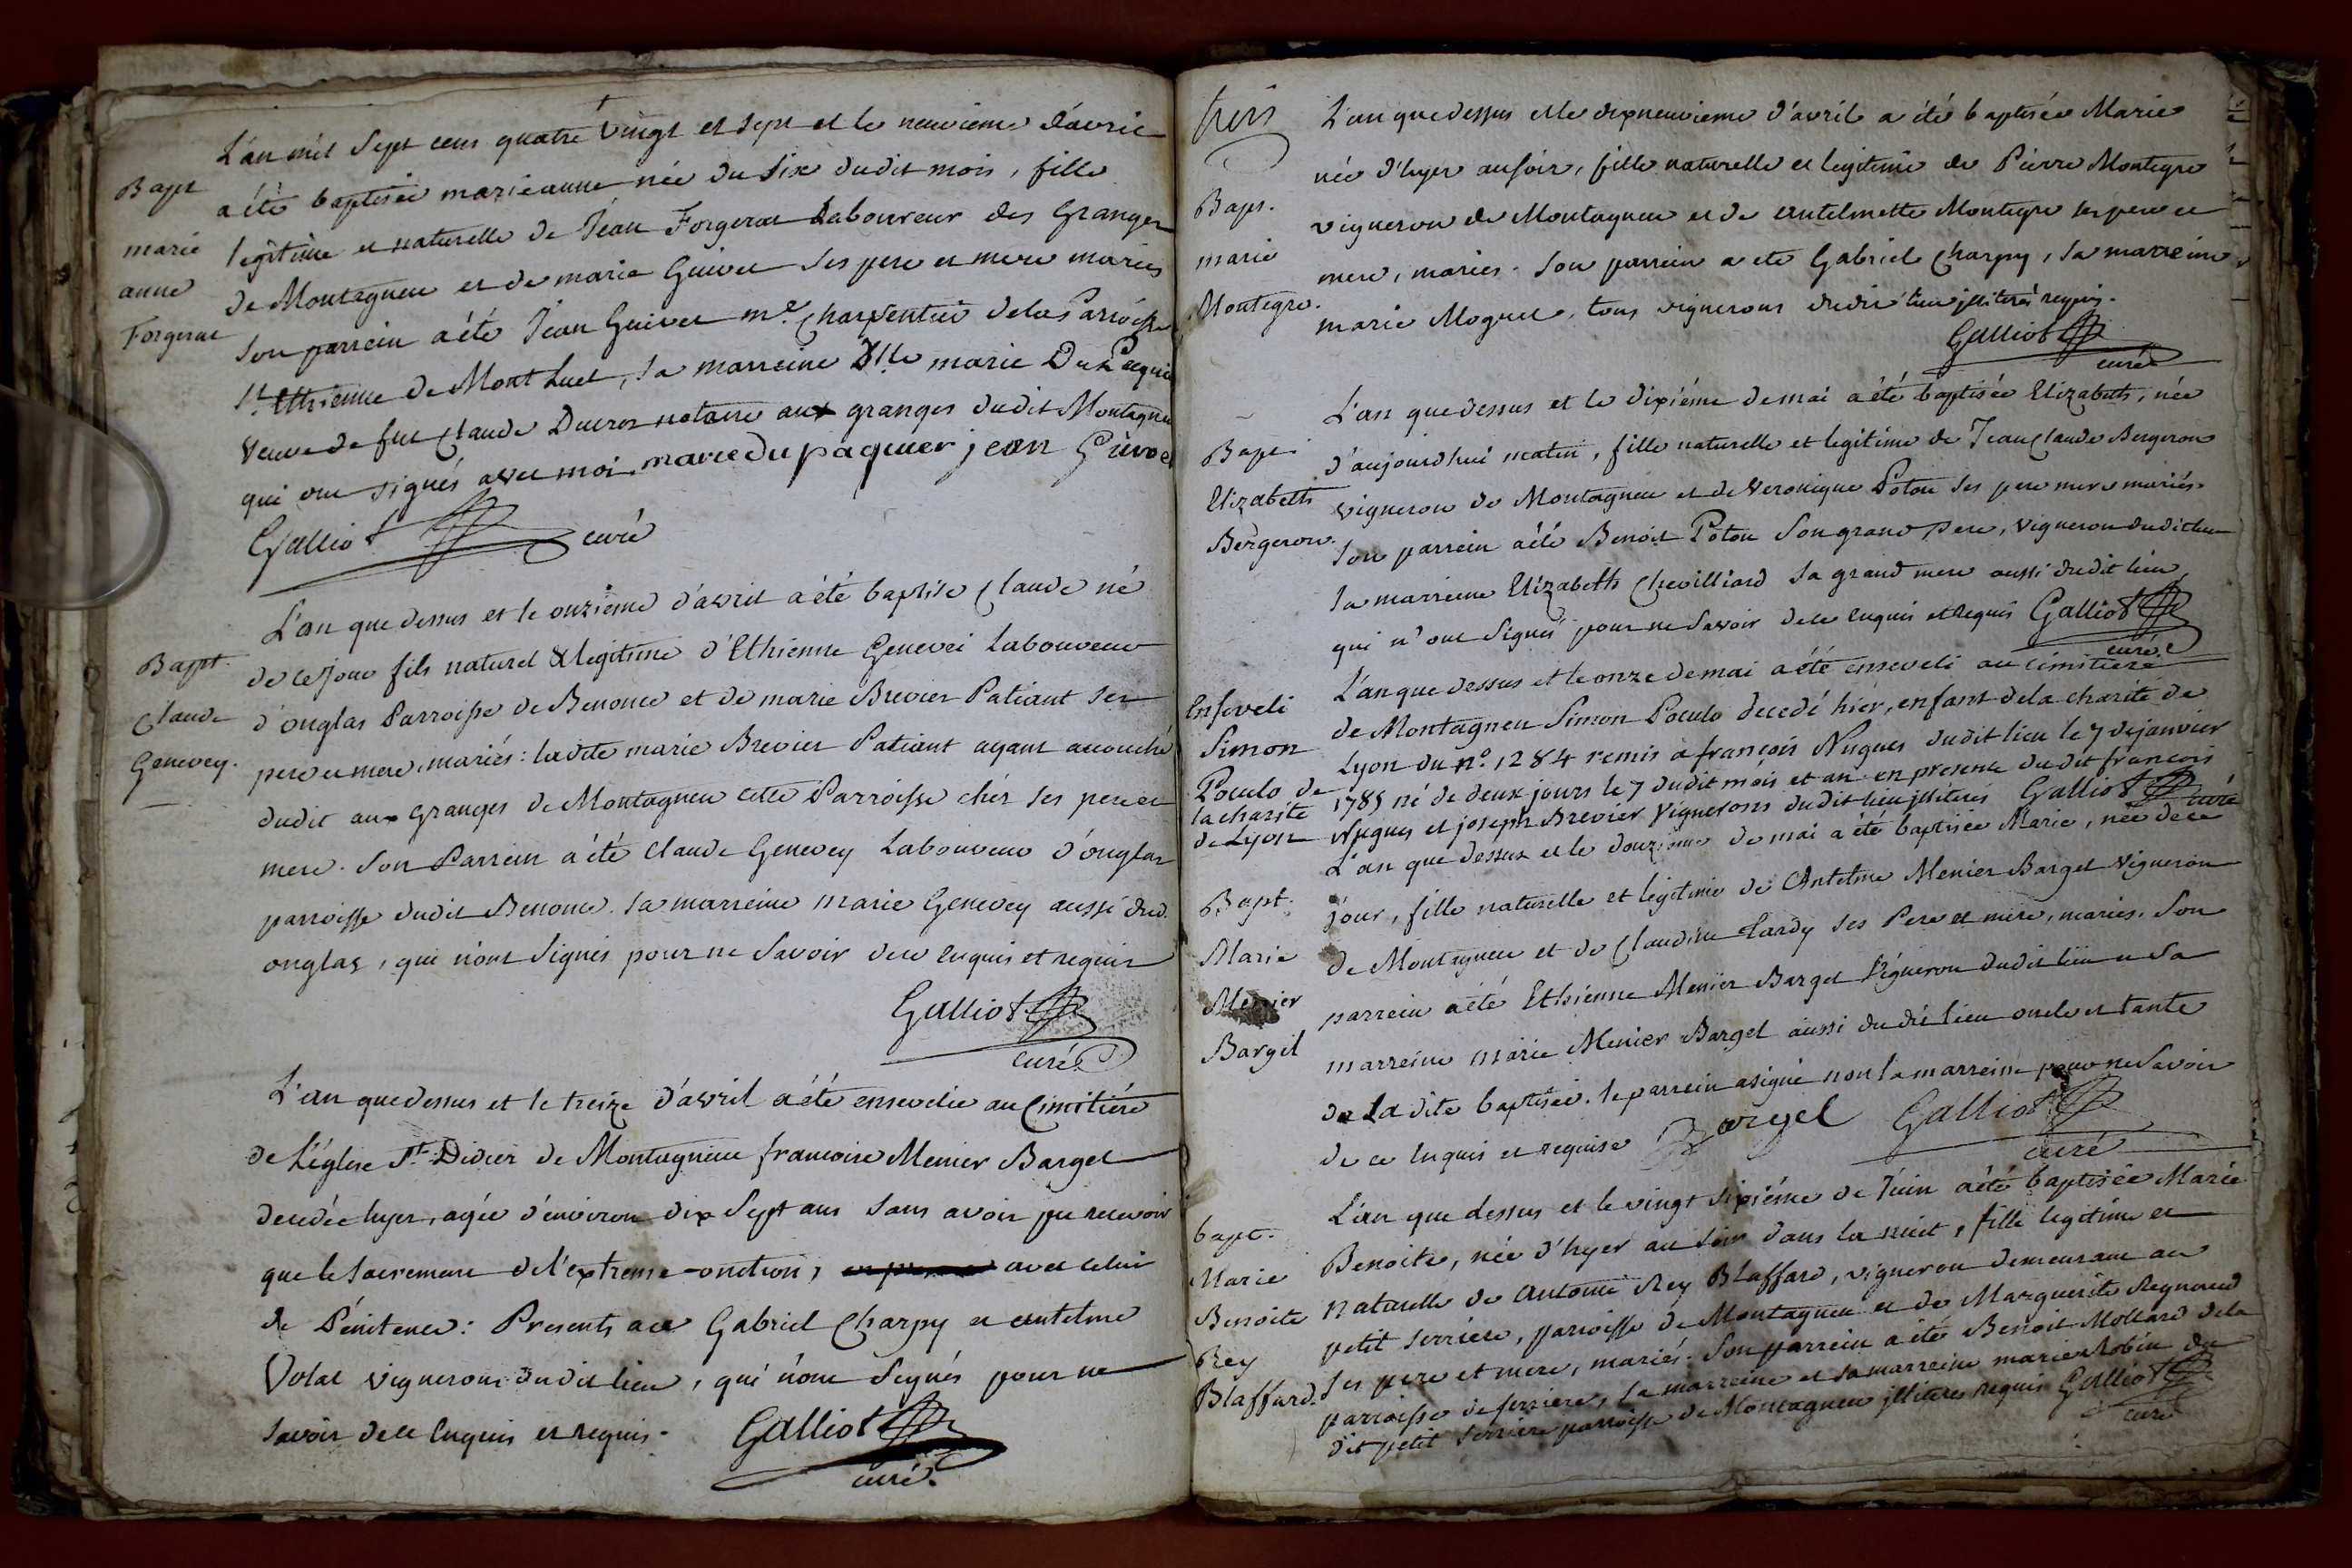 L'an mil sept cens quatre vingt et sept et le neuvieme d'avril
Bapt
a été baptisée marieanne née du six dudit mois, fille
marie
legitime et naturelle de Jean Forgerat Laboureur des Granges
anne
de Montagneu et de marie Guivet ses pere et mere mariés
Forgerat
son parrein a été Jean Guivet me. charpentier dela Parroisse
St. Ethienne de Mont Luel, sa marreine Dlle marie
veuve de feu Claude Ducros notaire aux granges dudit Montagneu
qui ont signés avec moi. marie du paquier jean Guivet
Galliot curé
L'an que dessus et le onzieme d'avril a été baptisé Claude né
Bapt.
de ce jour fils naturel & legitime d'Ethienne Genevei Laboureur
Claude
d'onglas Parroisse de Benonce et de marie Brevier Patiant ses
Genevey.
pere et mere, mariés : ladite marie Brevier Patiant ayant accouché
dudit aux Granges de Montagneu cette Parroisse chés ses pere et
mere. Son Parrein a été Claude Genevey Laboureur d'onglas
parroisse dudit Benonce. sa marreine marie Genevey aussi dud.
onglas, qui n'ont signés pour ne savoir de ce enquis et requis
Galliot
curé
L'an que dessus et le treize d'avril a été ensevelie au Cimitiére
de L'église St. Didier de Montagnieu francoise Menier Barget
decedée hyer, agée d'environ dix sept ans sans avoir pu recevoir
que le sacrement de l'extreme-onction, avec celui
de Pénitence : Presents à ce Gabriel Charpy et antelme
Volat vignerons dudit lieu, qui n'ont signés pour ne
savoir de ce enquis et requis.
Galliot
curé.
trois
L'an que dessus et le dixneuvieme d'avril a été baptisée Marie
née d'hyer au soir, fille naturelle et legitime de Pierre Montegre
Bapt.
vigneron de Montagneu et de antelmette Montegre ses pere et
marie
mere, mariés. Son parrein a eté Gabriel Charpy, sa marreine
Montegre.
marie Moguet, tous vignerons dudit lieu illiterés requis.
Galliot
curé
L'an que dessus et le dixiéme de mai a été baptisée Elizabeth, née
Bapt.
d'aujourdhui matin, fille naturelle et legitime de Jean Claude Bergeron
Elizabeth
vigneron de Montagneu et de Veronique Poton ses pere mere mariés.
Bergeron.
Son parrein a été Benoit Poton Son grand pere, vigneron dudit lieu
sa marreine Elizabeth Chevilliard sa grand mere aussi dudit lieu,
qui n'ont signés pour ne savoir de ce enquis et requis Galliot
curé
L'an que dessus et le onze de mai a été enseveli au cimitiere
Enseveli
de Montagneu Simon Poculo decedé hier, enfant dela charité de
Simon
Lyon du no. 1284 remis à françois Nugues dudit lieu le 7 de janvier
Poculo de
1785 né de deux jours le 7 dudit mois et an en presence dudit françois
la charité
Nugues et joseph Brevier vignerons dudit lieu illiterés Galliot curé
de Lyon
L'an que dessus et le douzieme de mai a été baptisée Marie, née de ce
Bapt.
jour, fille naturelle et legitime de Antelme Menier Barget vigneron
Marie
de Montagneu et de Claudine Lardy ses Pere et mere, mariés. Son
Menier
parrein a été Ethienne Menier Barget vigneron dudit lieu et sa
Bargil
marreine marie Menier Barget aussi dudit lieu oncle et tante
de la dite baptisée. le parrein a signé non la marreine pour ne savoir
de ce enquis et requise Bargel Galliot
curé
L'an que dessus et le vingt sixiéme de Juin a été baptisée Marie
bapt.
Benoite, née d'hyer au soir dans la nuit, fille legitime et
Marie
naturelle de Antoine Rey Blaffard, vigneron demeurant au
Benoite
petit serriére, parroisse de Montagneu et de Marguerite Regnaud
Rey
ses pere et mere, mariés. Son parrein a été Benoit Mollard dela
Blaffard.
parroisse de serriere, la marreine et sa marreine marie Robin du
dit petit serriere parroisse de Montagneu illiterés requis Galliot
curé